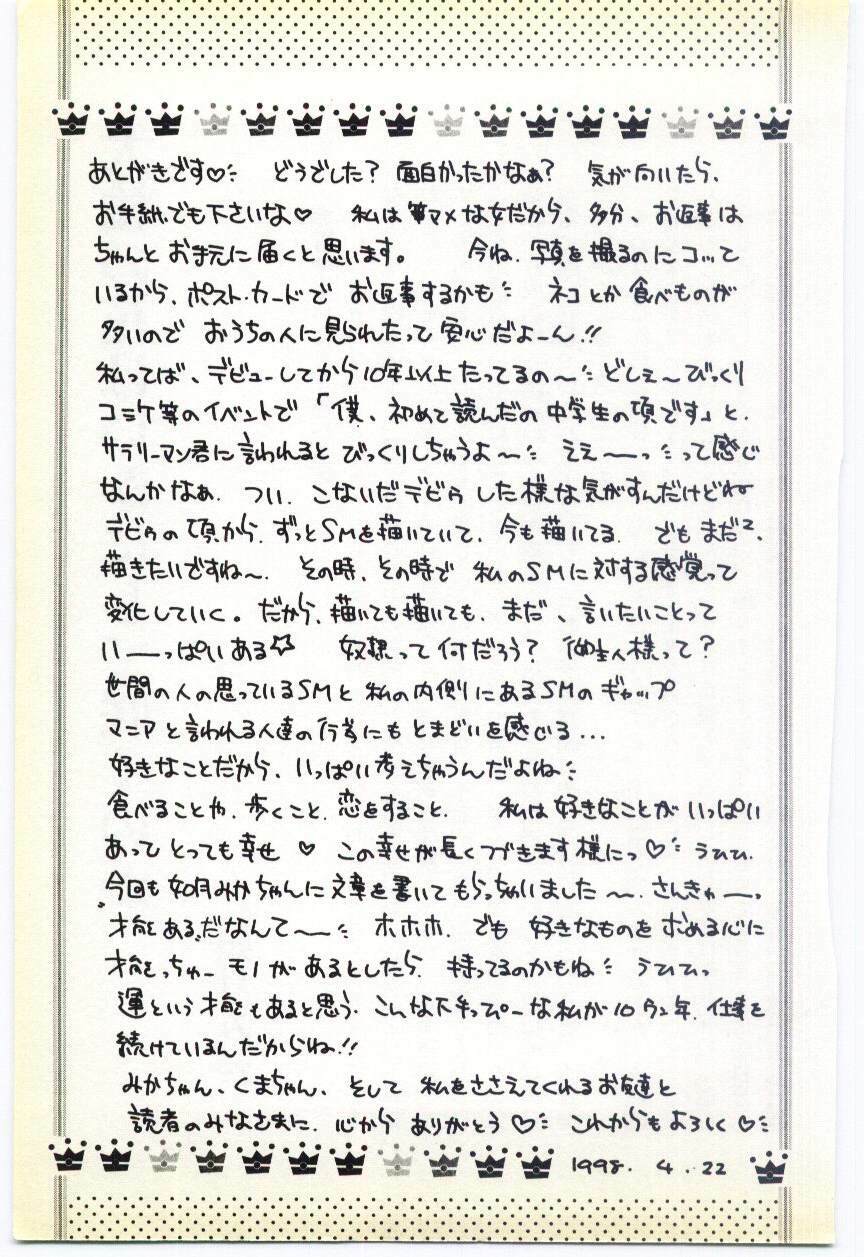 あとがきです♡ どうでした？ 面白かったかなぁ？ 気が向いたら、
お手紙でも下さいな♡ 私は筆マメな女だから、多分、お返事は
ちゃんとお手元に届くと思います。 今ね、写真を撮るのにコッて
いるから、ポスト・カードで お返事するかも ネコとか食べものが
多いので おうちの人に見られたって安心だよーん!!
私ってば、デビューしてから10年以上たってるの〜 どしぇ〜びっくり
コミケ等のイベントで「僕、初めて読んだの中学生の頃です」と、
サラリーマン君に言われると びっくりしちゃうよ〜 ええーーっ って感じ
なんかなぁ、つい、こないだデビゥした様な気がすんだけどねー
デビゥの頃から、ずっとSMを描いていて、今も描いてる。 でもまだ2、
描きたいですね〜。 その時、その時で 私のSMに対する感覚って
変化していく。だから、描いても描いても、まだ、言いたいことって
いーーっぱいある☆ 奴隷って何だろう？ 御主人様って？
世間の人の思っているSMと 私の内側にあるSMのギャップ
マニアと言われる人達の行為にもとまどいを感じる...
好きなことだから、いっぱい考えちゃうんだよね
食べることや、歩くこと、恋をすること、 私は好きなことがいっぱい
あって とっても幸せ ♡ この幸せが長くつづきます様にっ♡ うひひ、
今回も如月みかちゃんに文章を書いてもらっちゃいました〜、さんきゅーっ
"才能ある"だなんて〜 ホホホ、でも 好きなものを求める心に
才能っちゃーモノがあるとしたら、持ってるのかもね うひひっ
運という才能もあると思う、こんな下手っぴーな私が10ウン年、仕事を
続けているんだからね!!
みかちゃん、くまちゃん、そして 私をささえてくれるお友達と
読者のみなさまに、心から ありがとう♡ これからもよろしく♡
1998. 4. 22